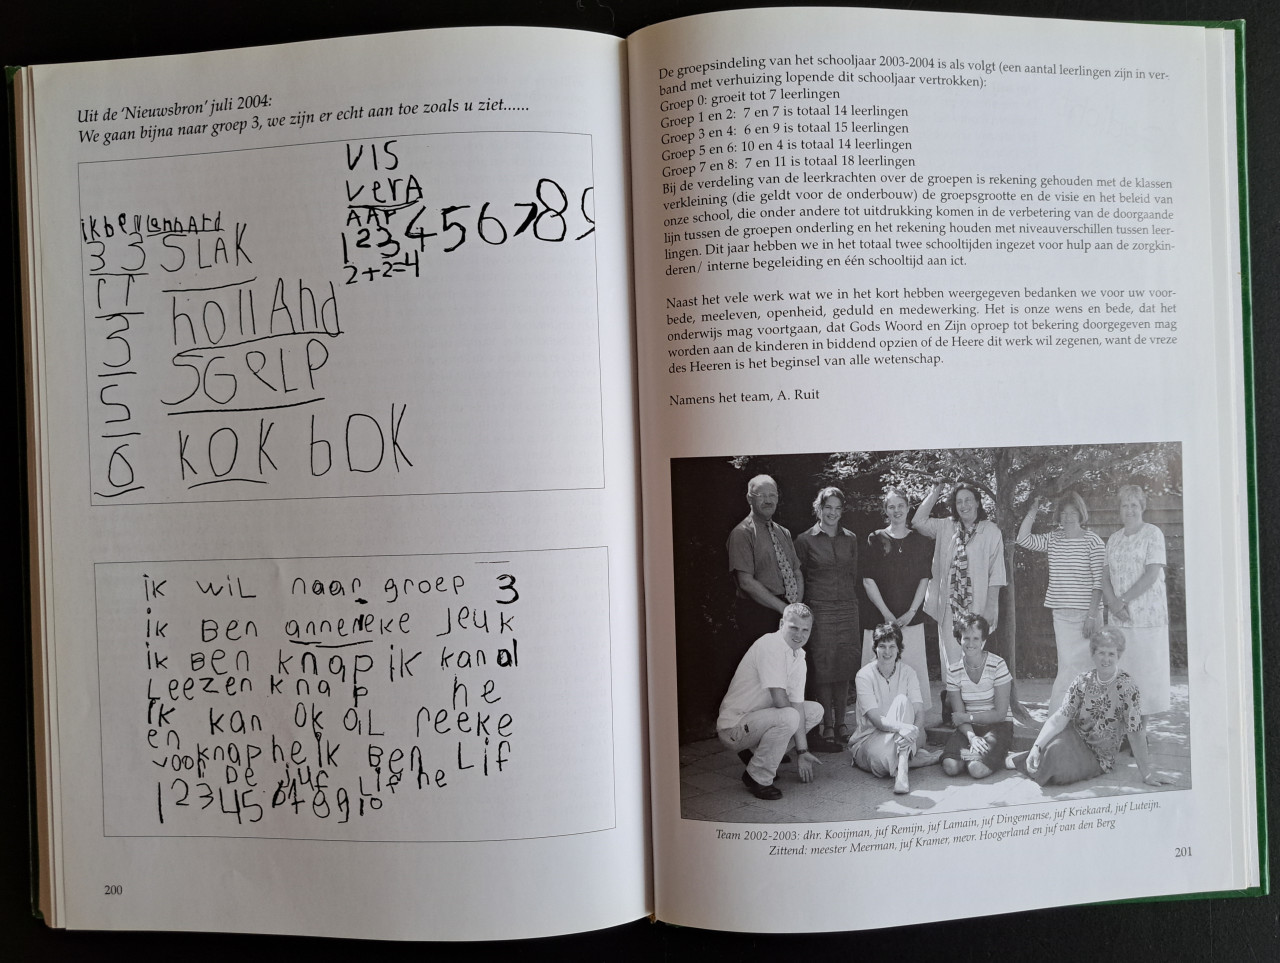 Uit de 'Nieuwsbron' juli 2004:
We gaan bijna naar groep 3, we zijn er echt aan toe zoals u ziet......
VIS
VerA
AAP
1 2 3 4 5 6 7 8 9
2+2=4
ik ben lennard
3 3 SLAK
11
hollAnd
3
SGRLP
5
KOK bOK
6
ik wiL naar groep 3
ik BEN anneneke Jeuk
ik BEN knap ik kan al
Leezen knap he
ik kan Ok aL reeke
en
vooknap he ik BEN Lif
r De juf Lif he
1 2 3 4 5 6 7 8 9 10
200
De groepsindeling van het schooljaar 2003-2004 is als volgt (een aantal leerlingen zijn in ver-
band met verhuizing lopende dit schooljaar vertrokken):
Groep 0: groeit tot 7 leerlingen
Groep 1 en 2: 7 en 7 is totaal 14 leerlingen
Groep 3 en 4: 6 en 9 is totaal 15 leerlingen
Groep 5 en 6: 10 en 4 is totaal 14 leerlingen
Groep 7 en 8: 7 en 11 is totaal 18 leerlingen
Bij de verdeling van de leerkrachten over de groepen is rekening gehouden met de klassen
verkleining (die geldt voor de onderbouw) de groepsgrootte en de visie en het beleid van
onze school, die onder andere tot uitdrukking komen in de verbetering van de doorgaande
lijn tussen de groepen onderling en het rekening houden met niveauverschillen tussen leer-
lingen. Dit jaar hebben we in het totaal twee schooltijden ingezet voor hulp aan de zorgkin-
deren/ interne begeleiding en één schooltijd aan ict.
Naast het vele werk wat we in het kort hebben weergegeven bedanken we voor uw voor-
bede, meeleven, openheid, geduld en medewerking. Het is onze wens en bede, dat het
onderwijs mag voortgaan, dat Gods Woord en Zijn oproep tot bekering doorgegeven mag
worden aan de kinderen in biddend opzien of de Heere dit werk wil zegenen, want de vreze
des Heeren is het beginsel van alle wetenschap.
Namens het team, A. Ruit
Team 2002-2003: dhr. Kooijman, juf Remijn, juf Lamain, juf Dingemanse, juf Kriekaard, juf Luteijn.
Zittend: meester Meerman, juf Kramer, mevr. Hoogerland en juf van den Berg
201